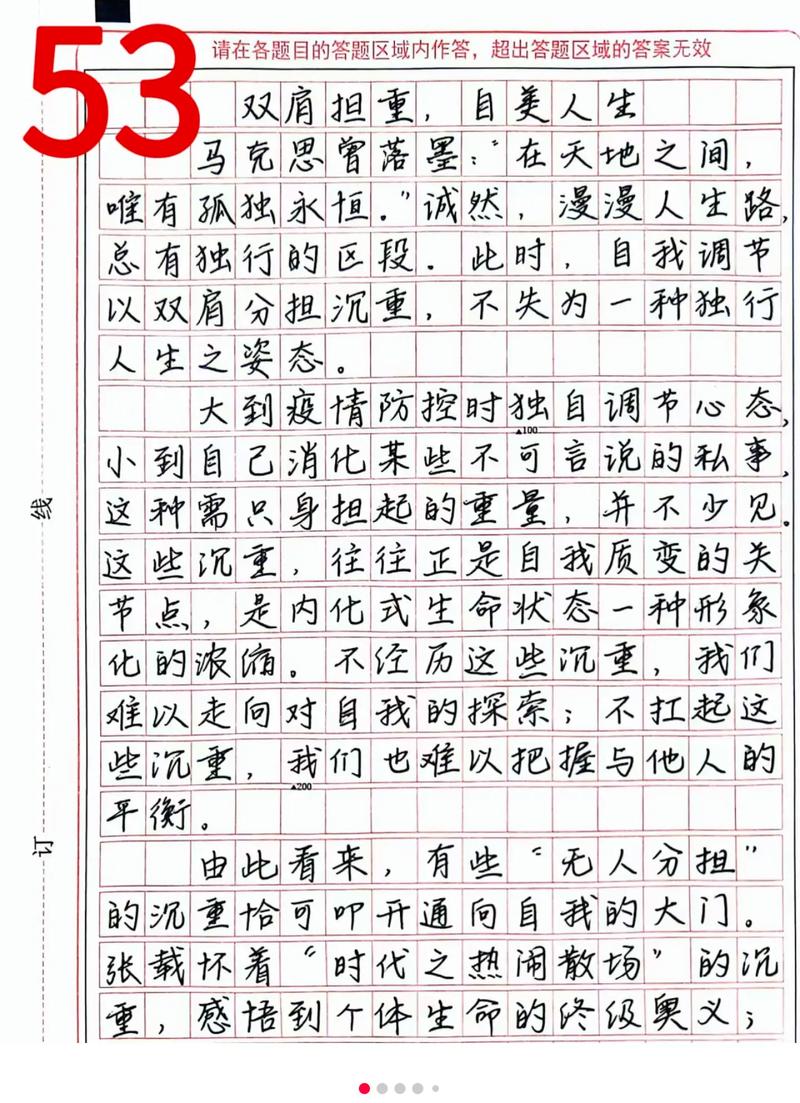 53
请在各题目的答题区域内作答，超出答题区域的答案无效
双肩担重，自美人生
马克思曾落墨：“在天地之间，
唯有孤独永恒。”诚然，漫漫人生路，
总有独行的区段。此时，自我调节
以双肩分担沉重，不失为一种独行
人生之姿态。
大到疫情防控时独自调节心态，
▲100
小到自己消化某些不可言说的私事，
这种需只身担起的重量，并不少见。
这些沉重，往往正是自我质变的关
节点，是内化式生命状态一种形象
化的浓缩。不经历这些沉重，我们
难以走向对自我的探索；不扛起这
些沉重，我们也难以把握与他人的
▲200
平衡。
由此看来，有些“无人分担”
的沉重恰可叩开通向自我的大门。
张载怀着“时代之热闹散场”的沉
重，感悟到个体生命的终级奥义；
线
订